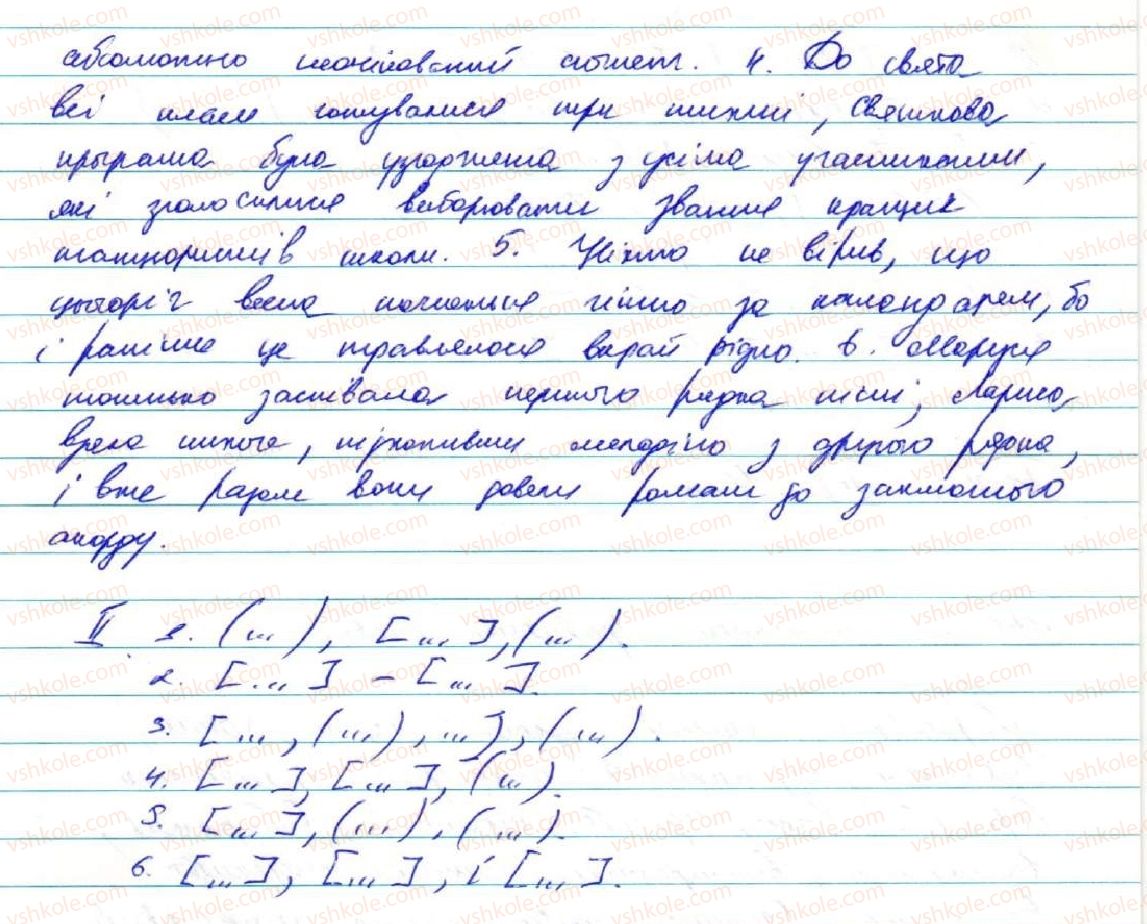 абсолютно шокований сюжет. 4. До свята
всі класи готувалися три тижні, святкова
програма була узгоджена з усіма учасниками,
які зголосилися виборювати звання кращих
танцюристів школи. 5. Ніхто не вірив, що
цьогоріч весна почнеться чітко за календарем, бо
і раніше це траплялося вкрай рідко. 6. Маруся
тоненько заспівала першого рядка пісні, Лариса,
взяла нижче, підхопивши мелодію з другого рядка,
і вже разом вони довели романс до заключного
акорду.
II 1. (...), [...], (...).
2. [...] – [...].
3. [..., (...), ...], (...).
4. [...], [...], (...).
5. [...], (...), (...).
6. [...], [...], і [...].